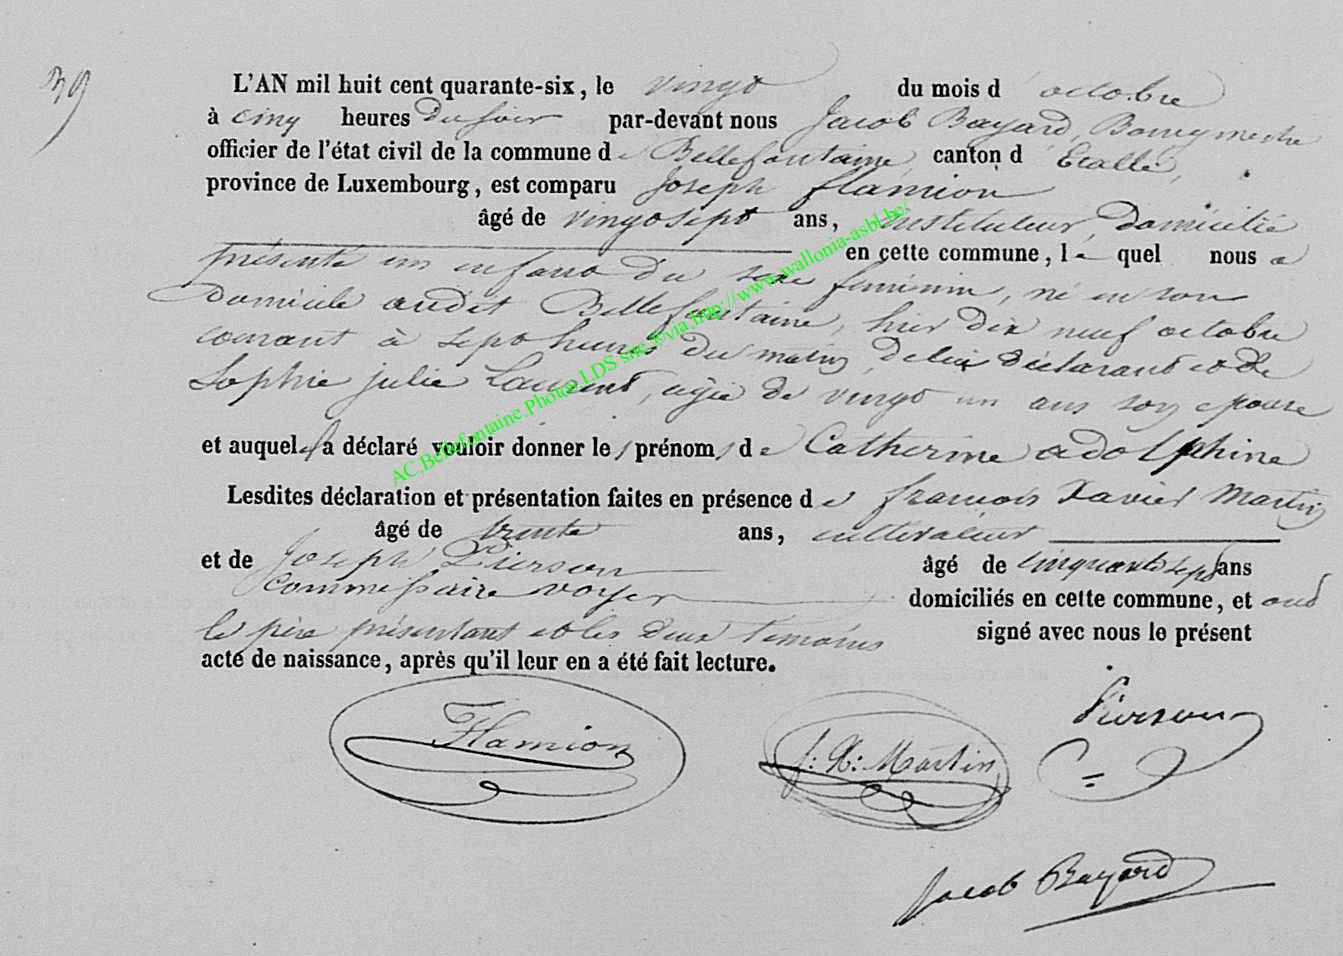 39
L'AN mil huit cent quarante-six, le vingt du mois d'octobre
à cinq heures du soir par-devant nous Jacob Bayard, Bourgmestre
officier de l'état civil de la commune de Bellefontaine, canton d'Etalle,
province de Luxembourg, est comparu Joseph flamion
âgé de vingt sept ans, instituteur, domicilié
en cette commune, lequel nous a
présenté un enfant du sexe féminin, né en son
domicile audit Bellefontaine, hier dix neuf octobre
courant à sept heures du matin, de lui déclarant et de
Sophie julie Laurent, agée de vingt un ans son epouse
et auquel il a déclaré vouloir donner les prénoms de Catherine adolphine
Lesdites déclaration et présentation faites en présence de francois Xavier Martin
âgé de trente ans, cultivateur
et de Joseph Pierson âgé de cinquante sept ans
Commissaire voyer domiciliés en cette commune, et ont
le père présentant et les deux témoins signé avec nous le présent
acte de naissance, après qu'il leur en a été fait lecture.
Flamion
f: X: Martin
Pierson
Jacob Bayard
AC.Bellefontaine.Photos.LDS site &via.http://www.wallonia-asbl.be/